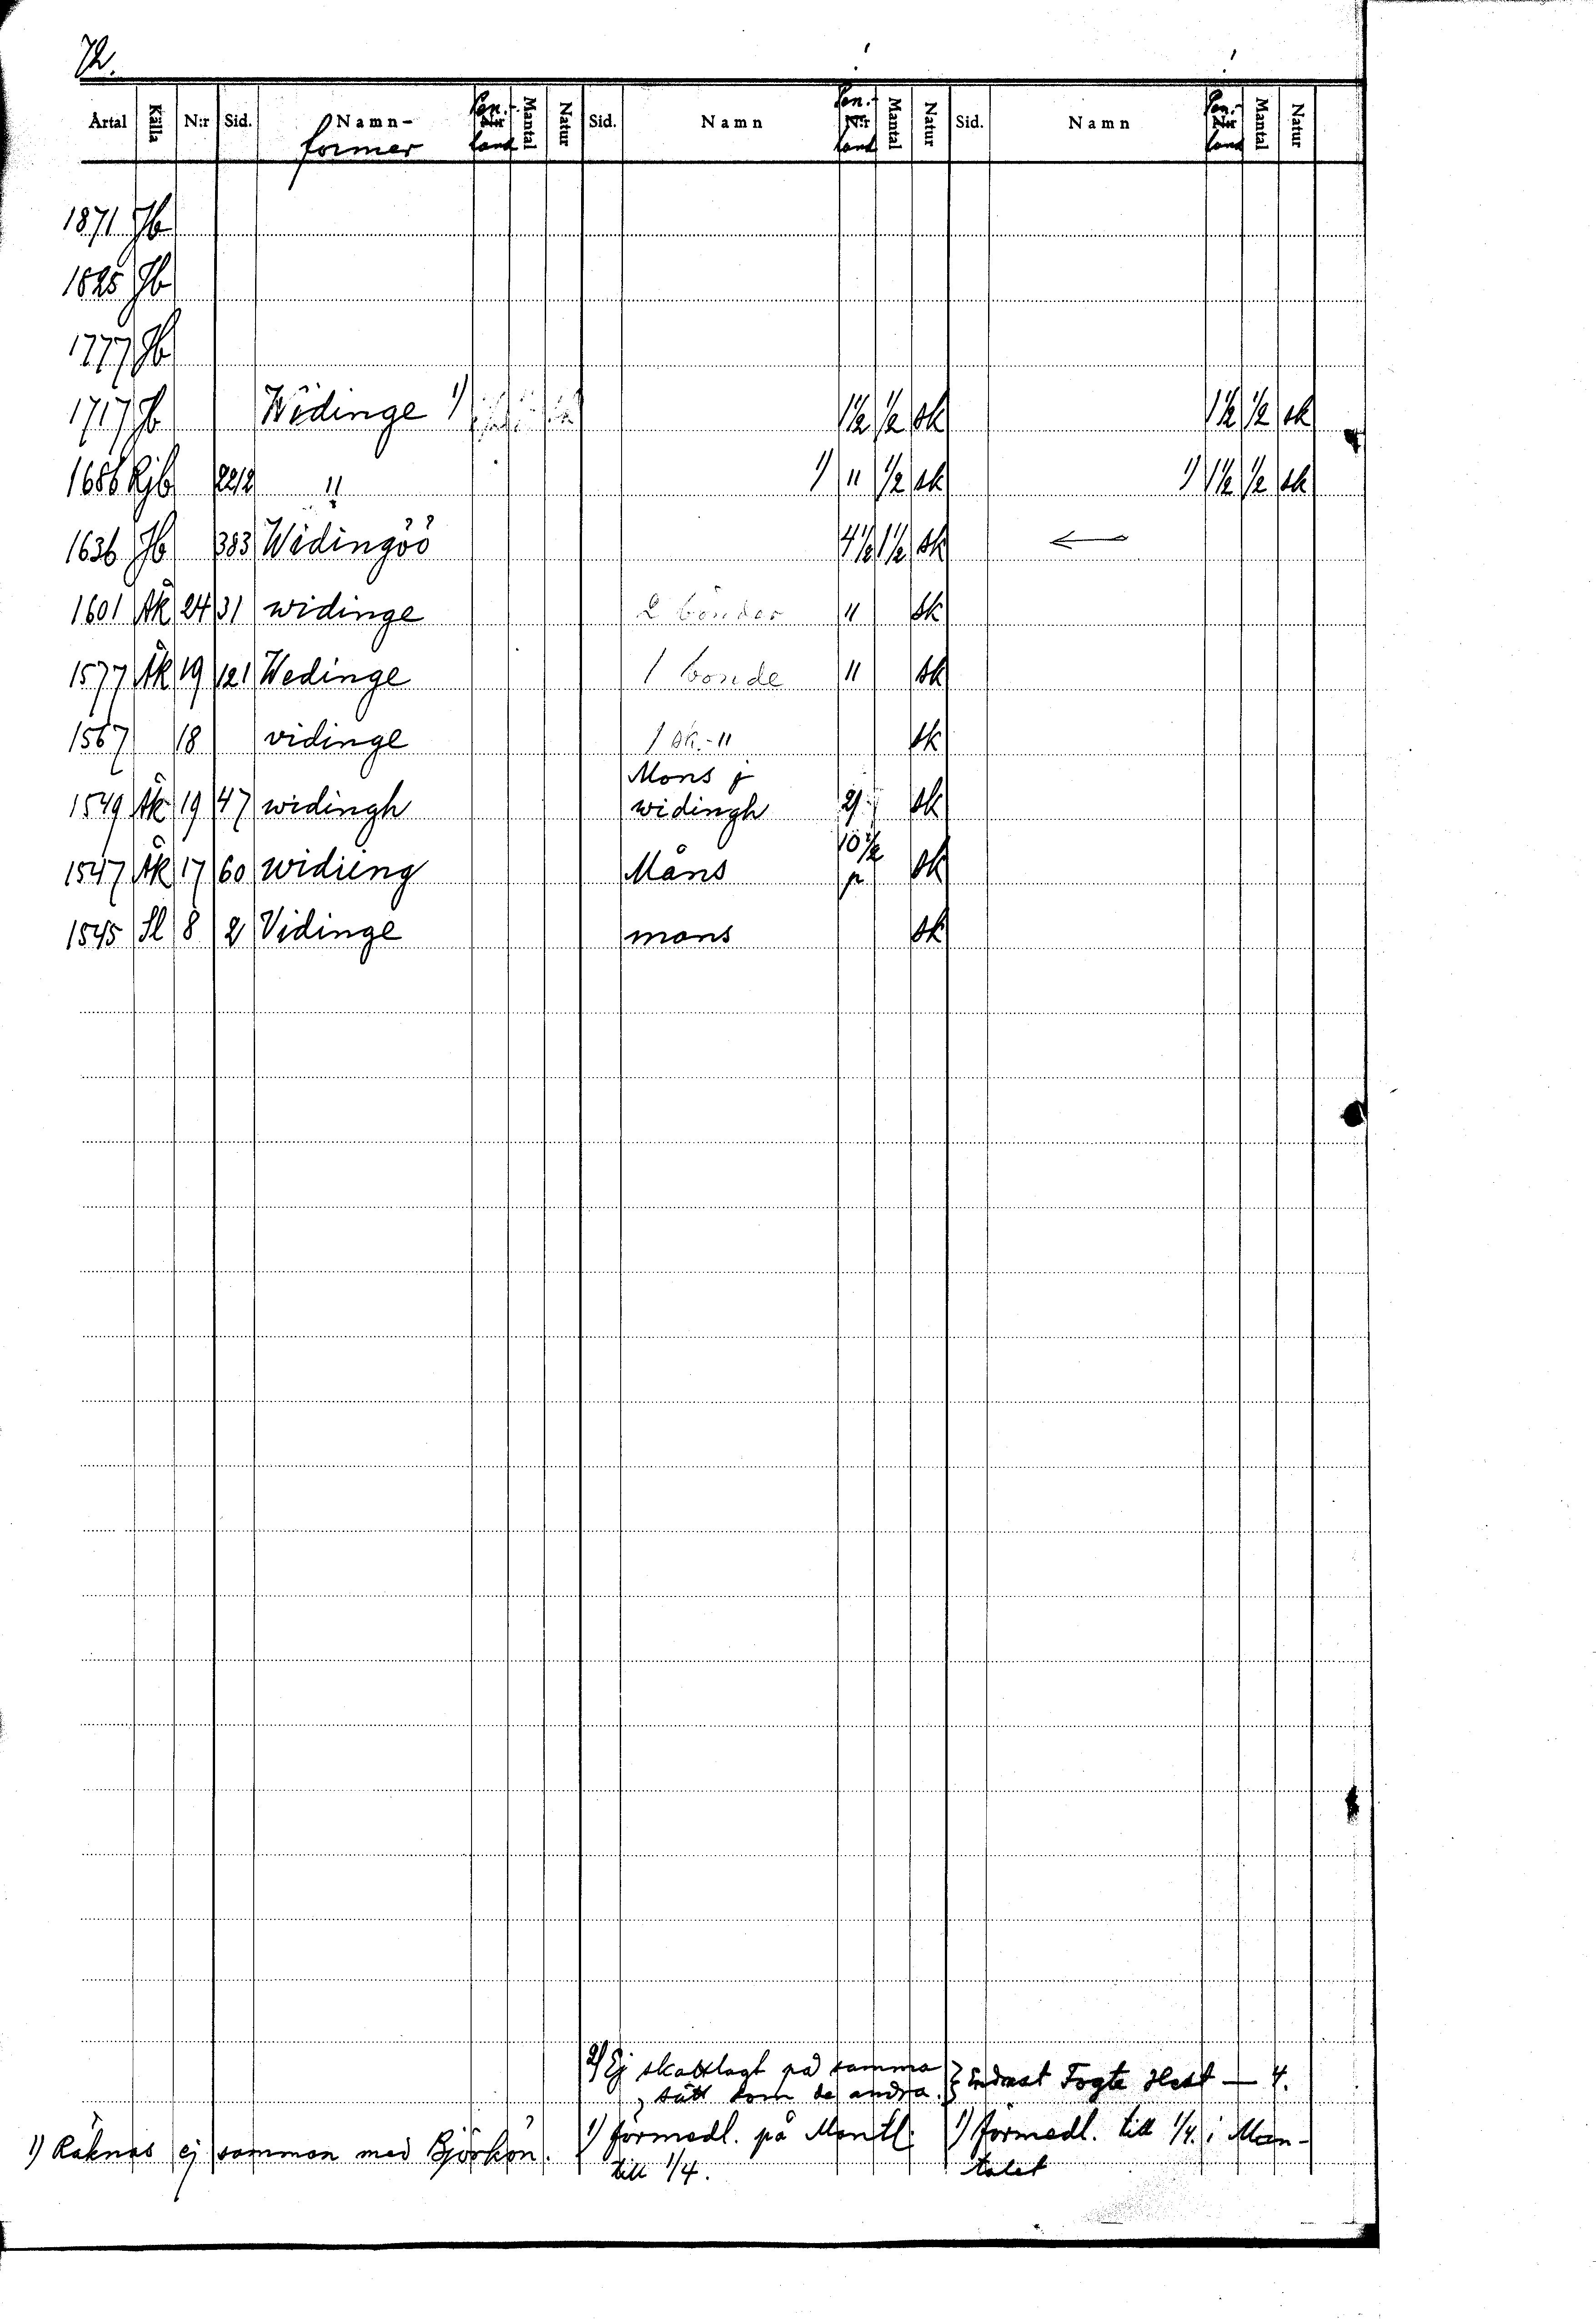 72.
Årtal Källa N:r Sid. Namn-former Pen.-land Mantal Natur Sid. Namn Pen.-land Mantal Natur Sid. Namn Pen.-land Mantal Natur
1871 Jb
1825 Jb
1777 Jb
1717 Jb Widinge 1) 1½ ½ sk 1½ ½ sk
1686 Rjb 2212 " 1) " ½ sk 1) 1½ ½ sk
1636 Jb 383 Widingöö 4½ 1½ sk ←
1601 Åk 24 31 widinge 2 bönder " sk
1577 Åk 19 121 Wedinge 1 bonde " sk
1567 18 vidinge 1 sk.-" sk
Mons j
1549 Åk 19 47 widingh widingh 2) sk
10½
1547 Åk 17 60 widieng Måns p sk
1545 Sl 8 2 Vidinge mons sk
2) Ej skattlagt på samma
sätt som de andra. } endast Fogte Hest — 4.
1) Räknas ej samman med Björkön.
1) förmedl. på Mantl.
till 1/4.
1) förmedl. till 1/4. i Man-
talet